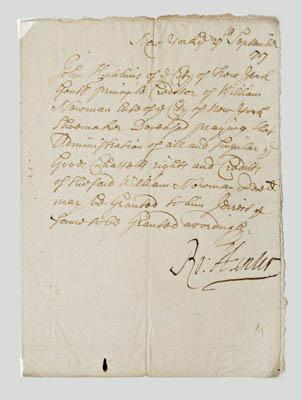 New York ye 17th September
1717
John Hutchins of ye City of New York
Gentt principle Creditor of William
Newman late of ye City of New York
Shoemaker Deceased praying that
Administration of all and Singular ye
Goods Chattels rights and Credits
of the said William Newman Deced
may be Granted to him I direct ye
same to be Granted accordingly
Ro: Hunter